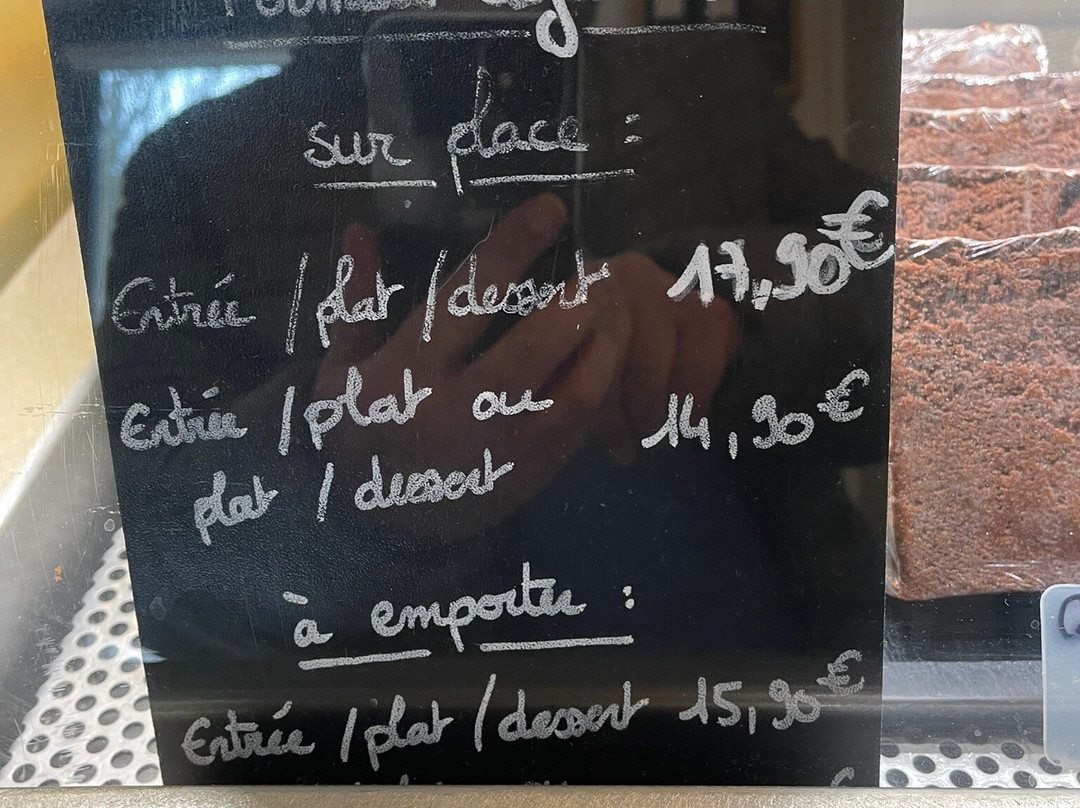 sur place :
Entrée / plat / dessert 17,90€
Entrée / plat ou 14,90€
plat / dessert
à emporter :
Entrée / plat / dessert 15,90€